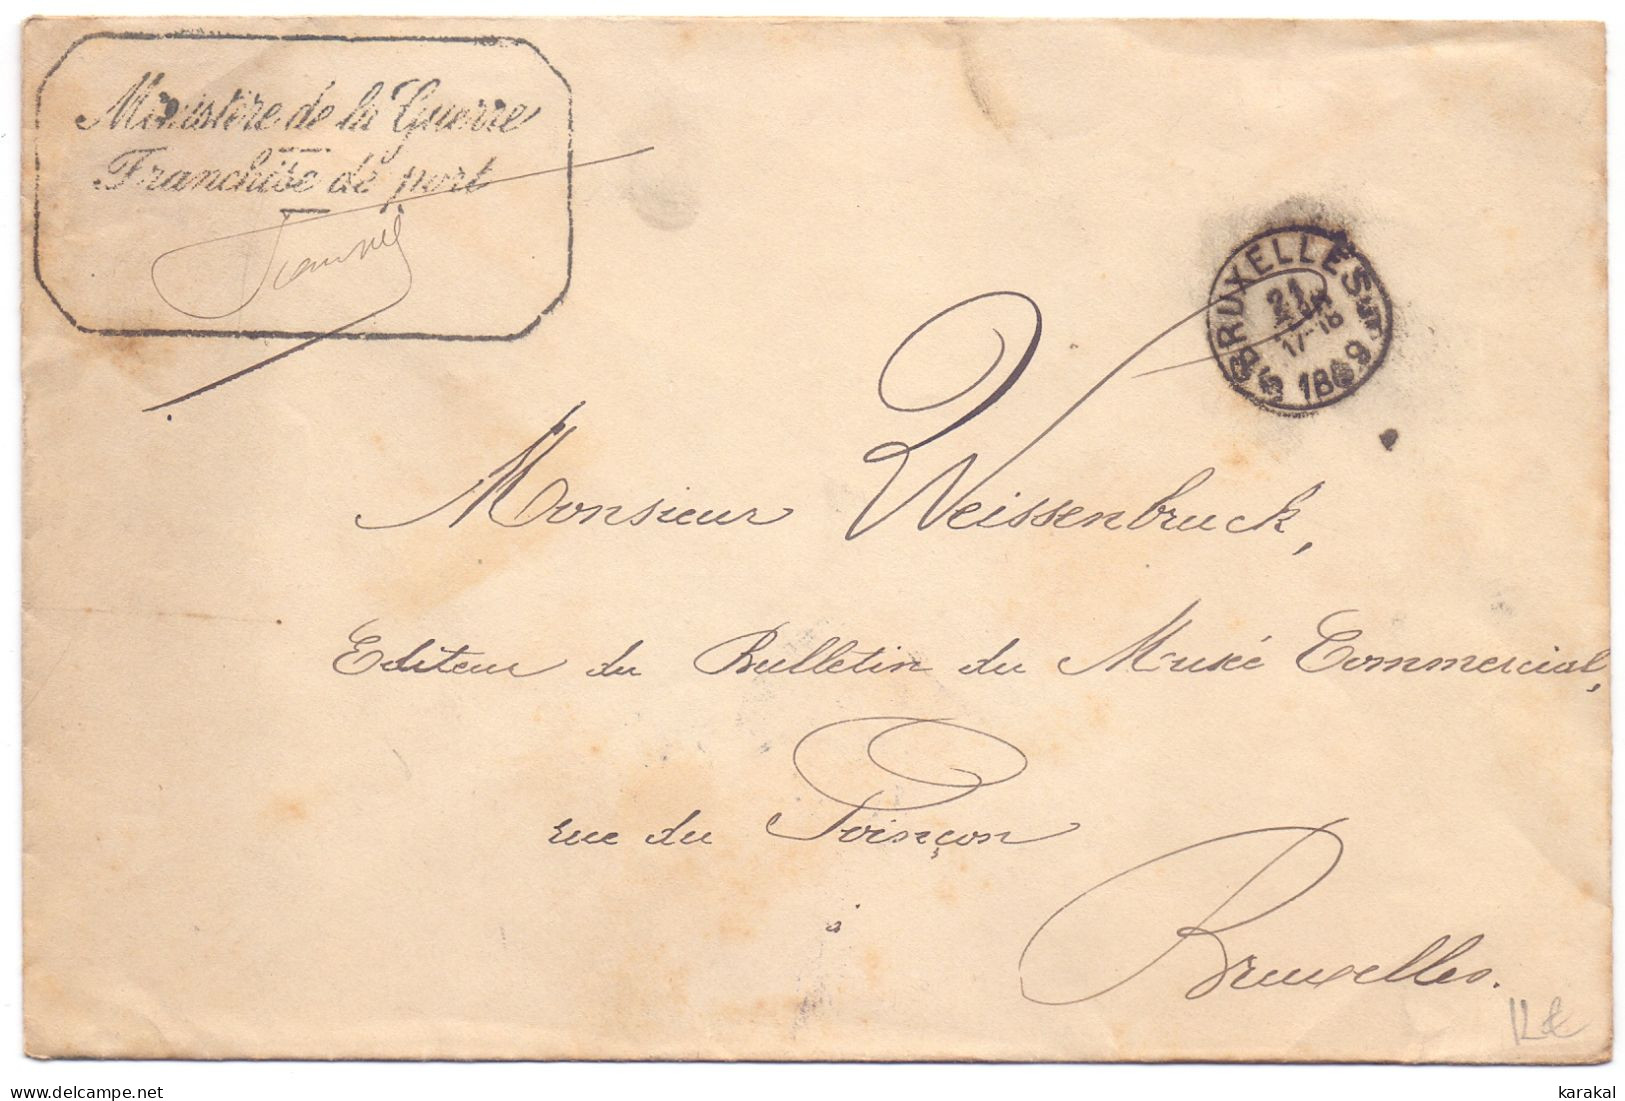 Ministère de la Guerre
Franchise de port
BRUXELLES
21
17-18
5 1889
Monsieur Weissenbruck,
Editeur du Bulletin du Musée Commercial,
rue du Poinçon
à
Bruxelles.
delcampe.net
karakal